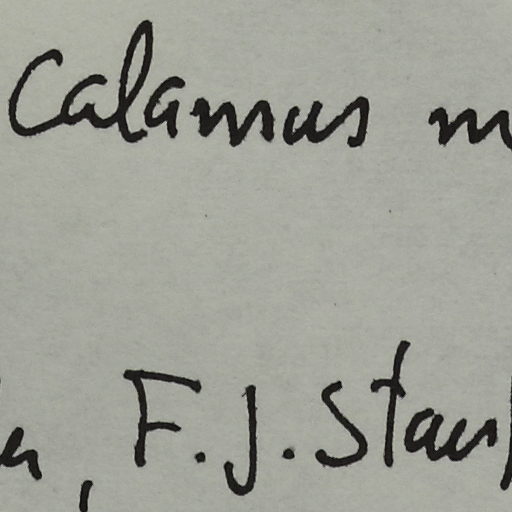 Calamus m
, F.J. Stauf